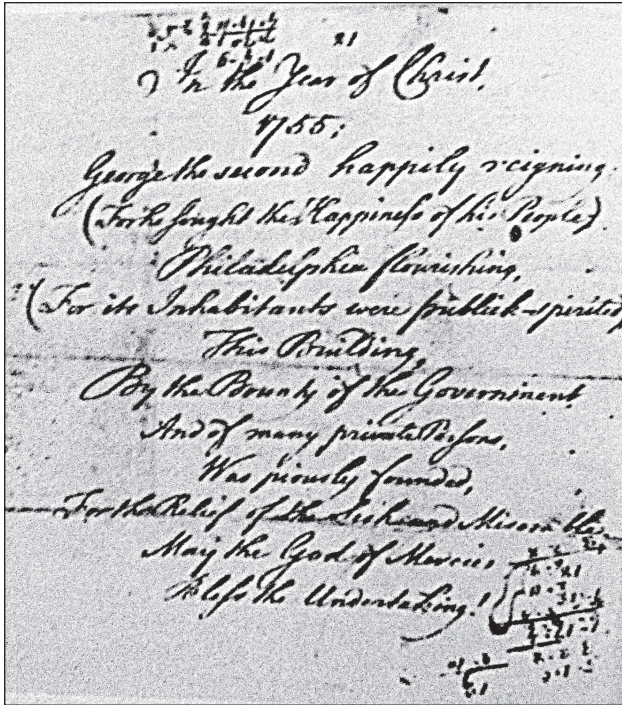 21
In the Year of Christ,
1755:
George the second happily reigning
(For he sought the Happiness of his People)
Philadelphia flourishing,
(For its Inhabitants were publick-spirited)
This Building,
By the Bounty of the Government
And of many private Persons,
Was piously founded,
For the Relief of the Sick and Miserable
May the God of Mercies
Bless the Undertaking!